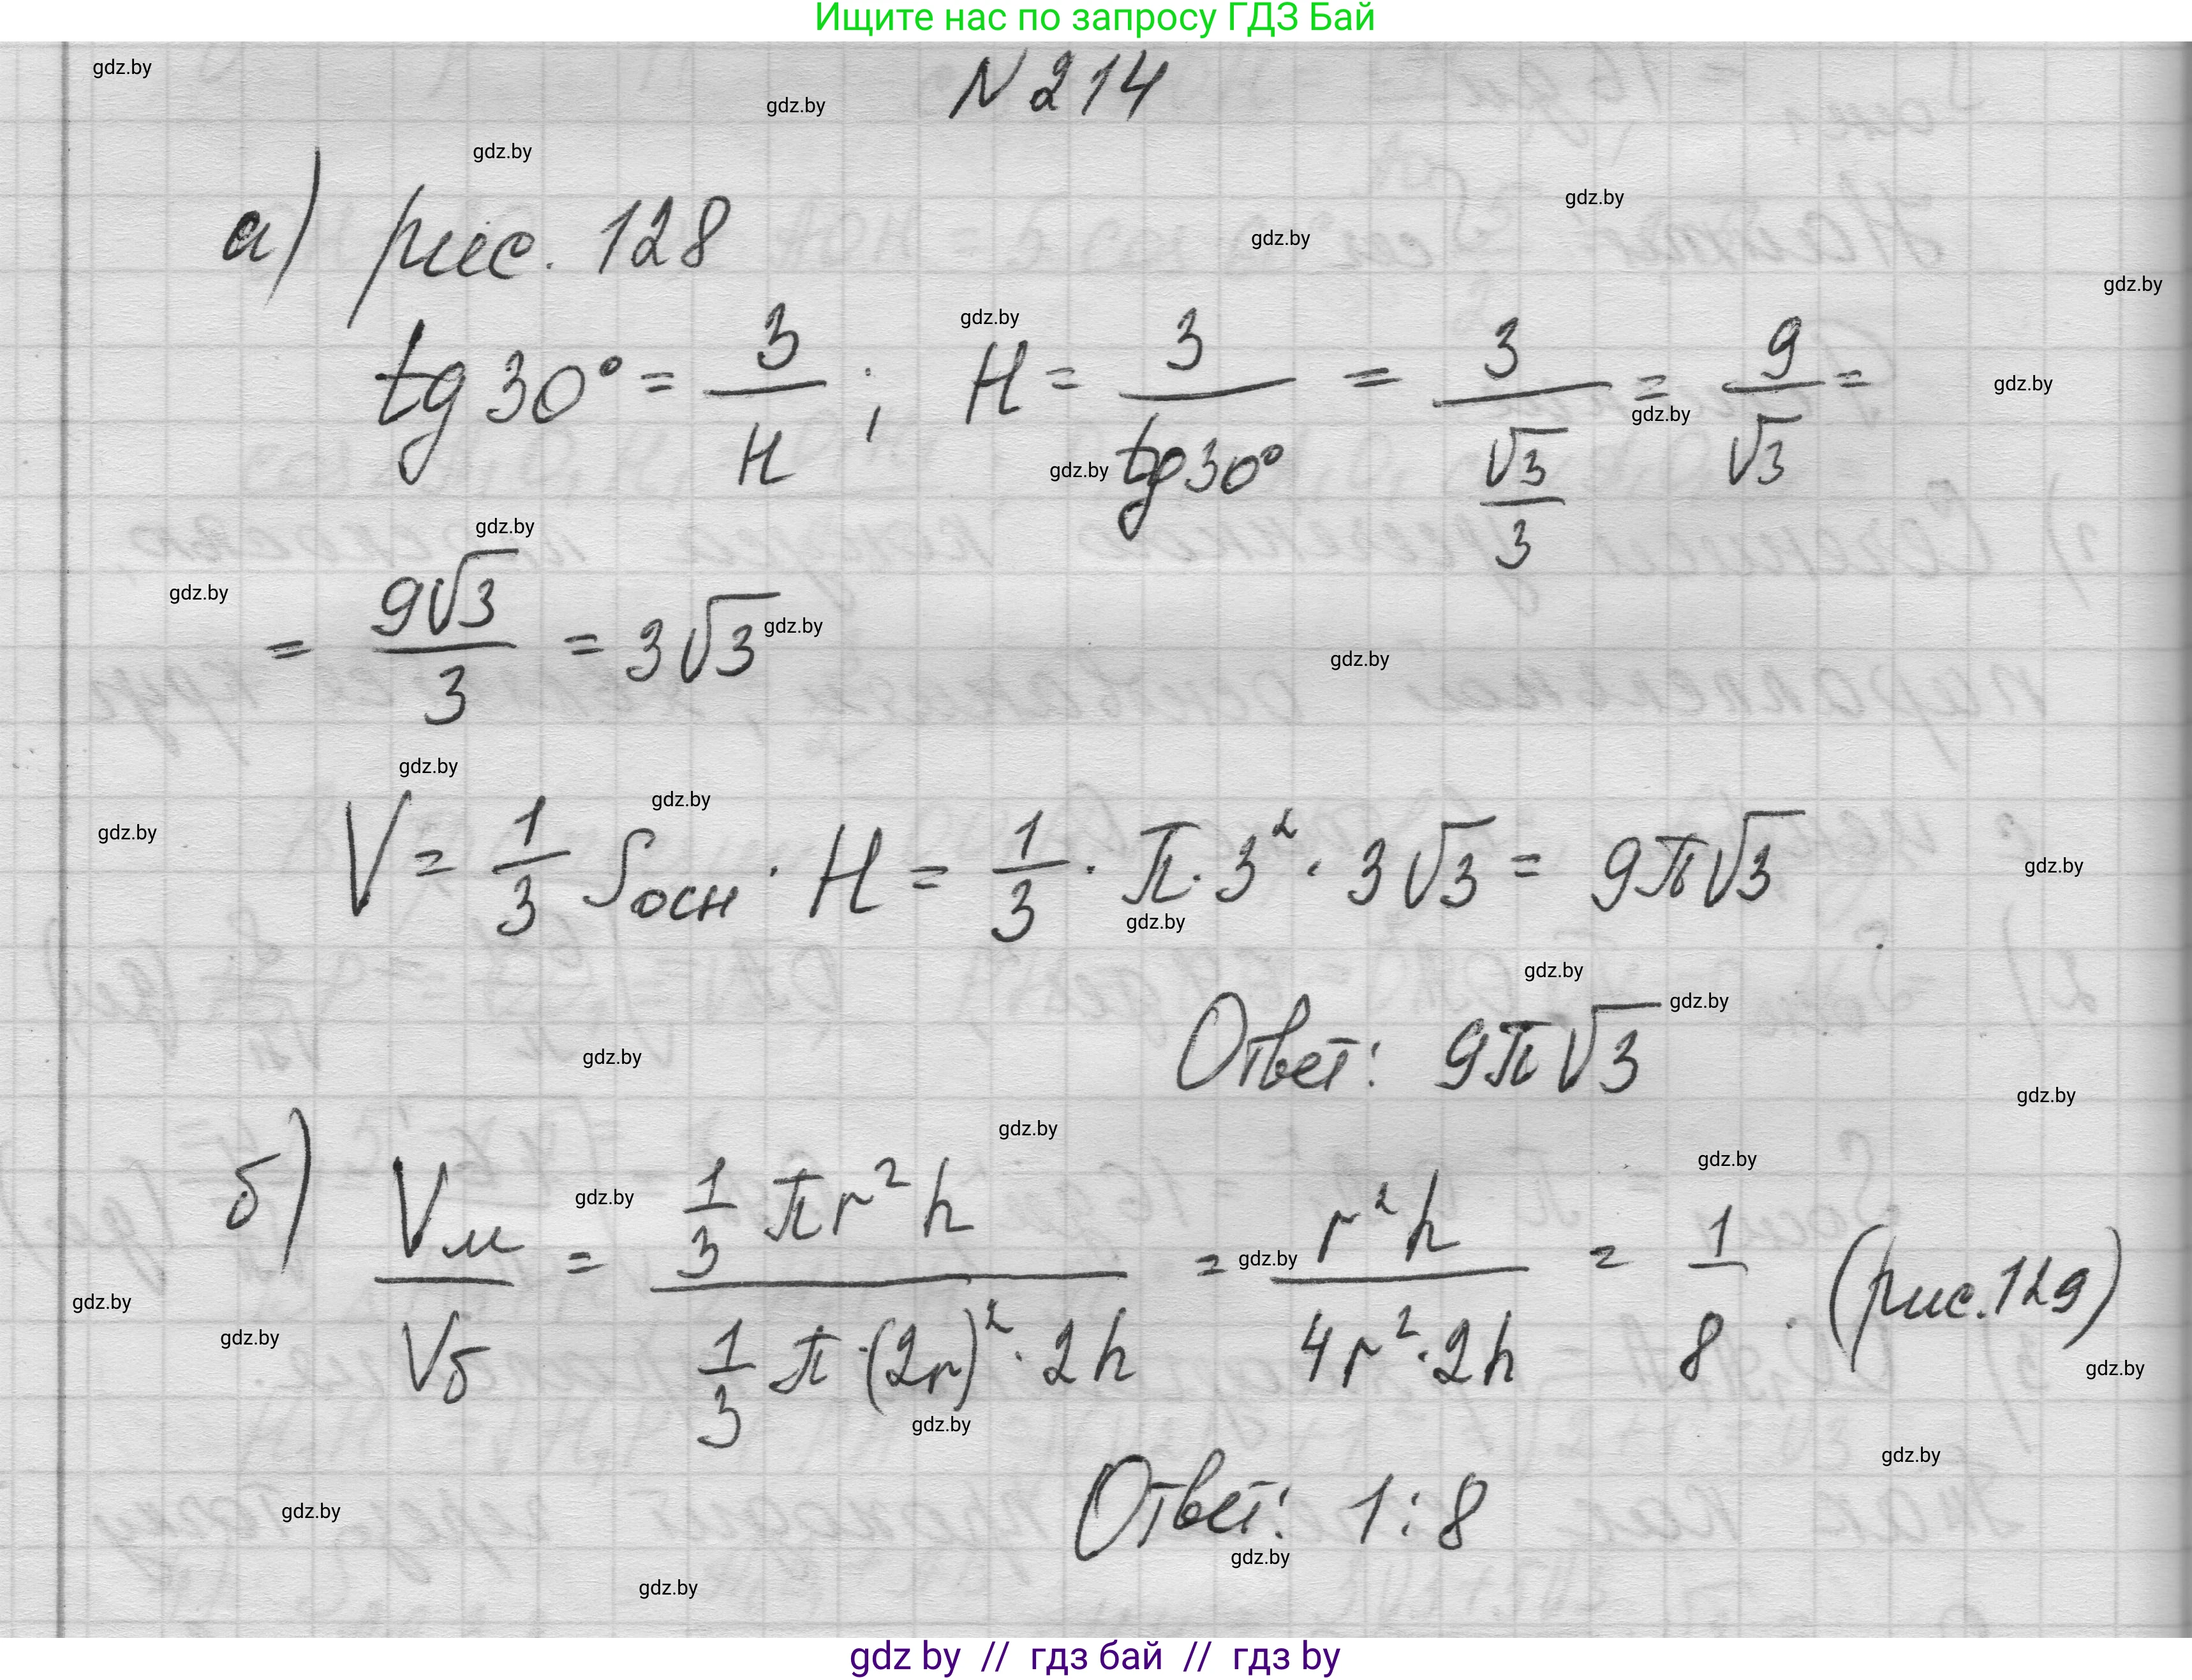 Ищите нас по запросу ГДЗ Бай
N 214
а) рис. 128
tg 30° = 3/H ; H = 3/tg 30° = 3/(√3/3) = 9/√3 =
= 9√3/3 = 3√3
V = 1/3 Sосн · H = 1/3 · π · 3² · 3√3 = 9π√3
Ответ: 9π√3
б) Vм/Vб = (1/3 πr²h)/(1/3 π·(2r)²·2h) = r²h/(4r²·2h) = 1/8 . (рис. 129)
Ответ: 1:8
gdz by // гдз бай // гдз by